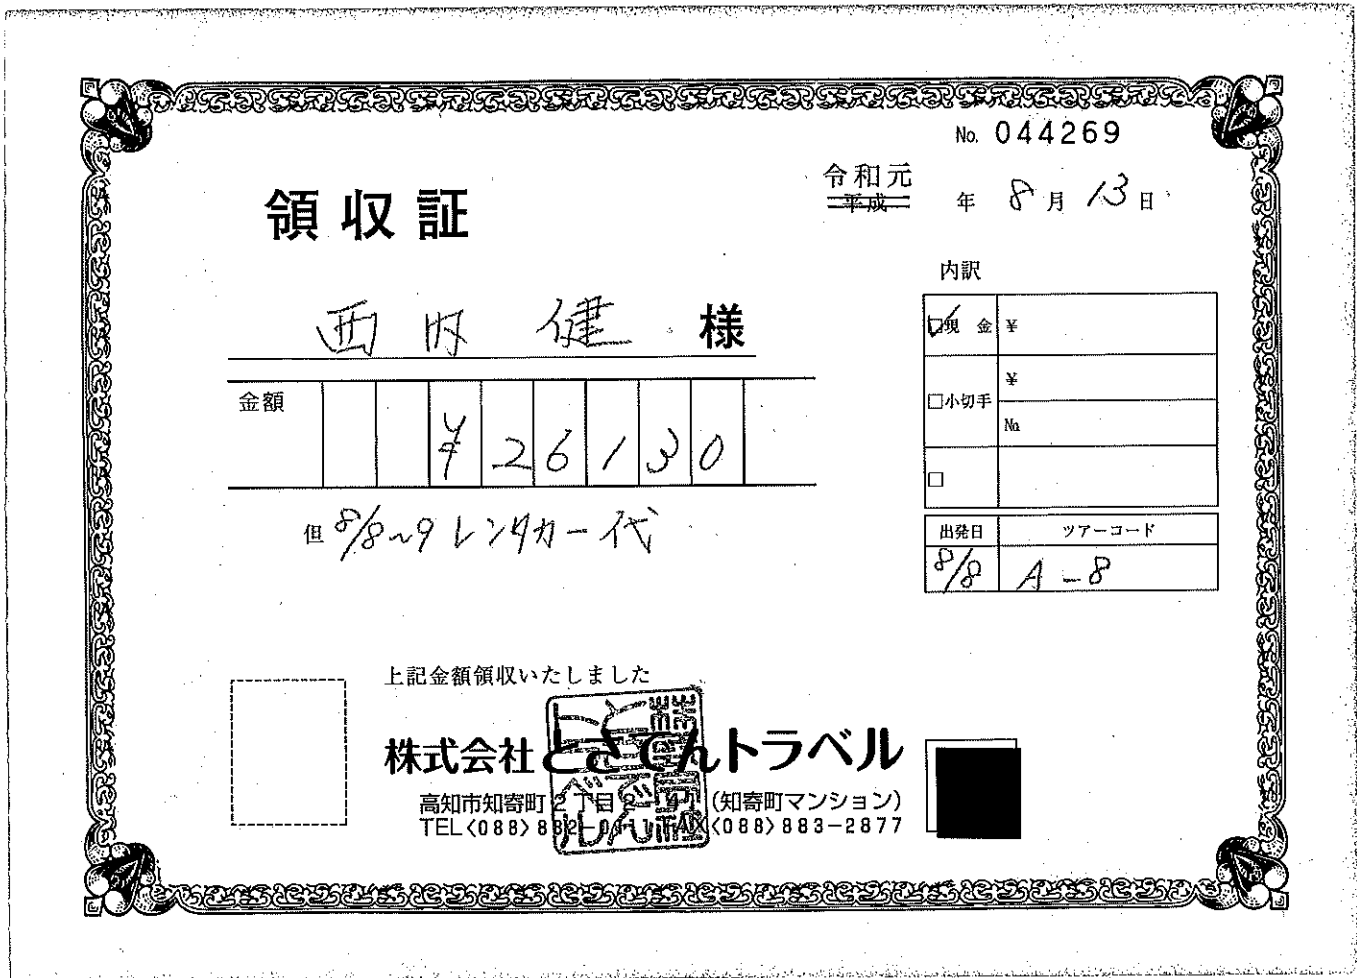 No. 044269
領収証
令和元
平成 年 8月 13日
西内 健 様
金額 ¥26130
但 8/8~9 レンタカー代
内訳
☑現 金 ¥
□小切手 ¥
No.
□
出発日 ツアーコード
8/8 A-8
上記金額領収いたしました
株式会社とさでんトラベル
高知市知寄町2丁目 (知寄町マンション)
TEL<088>882- FAX<088>883-2877